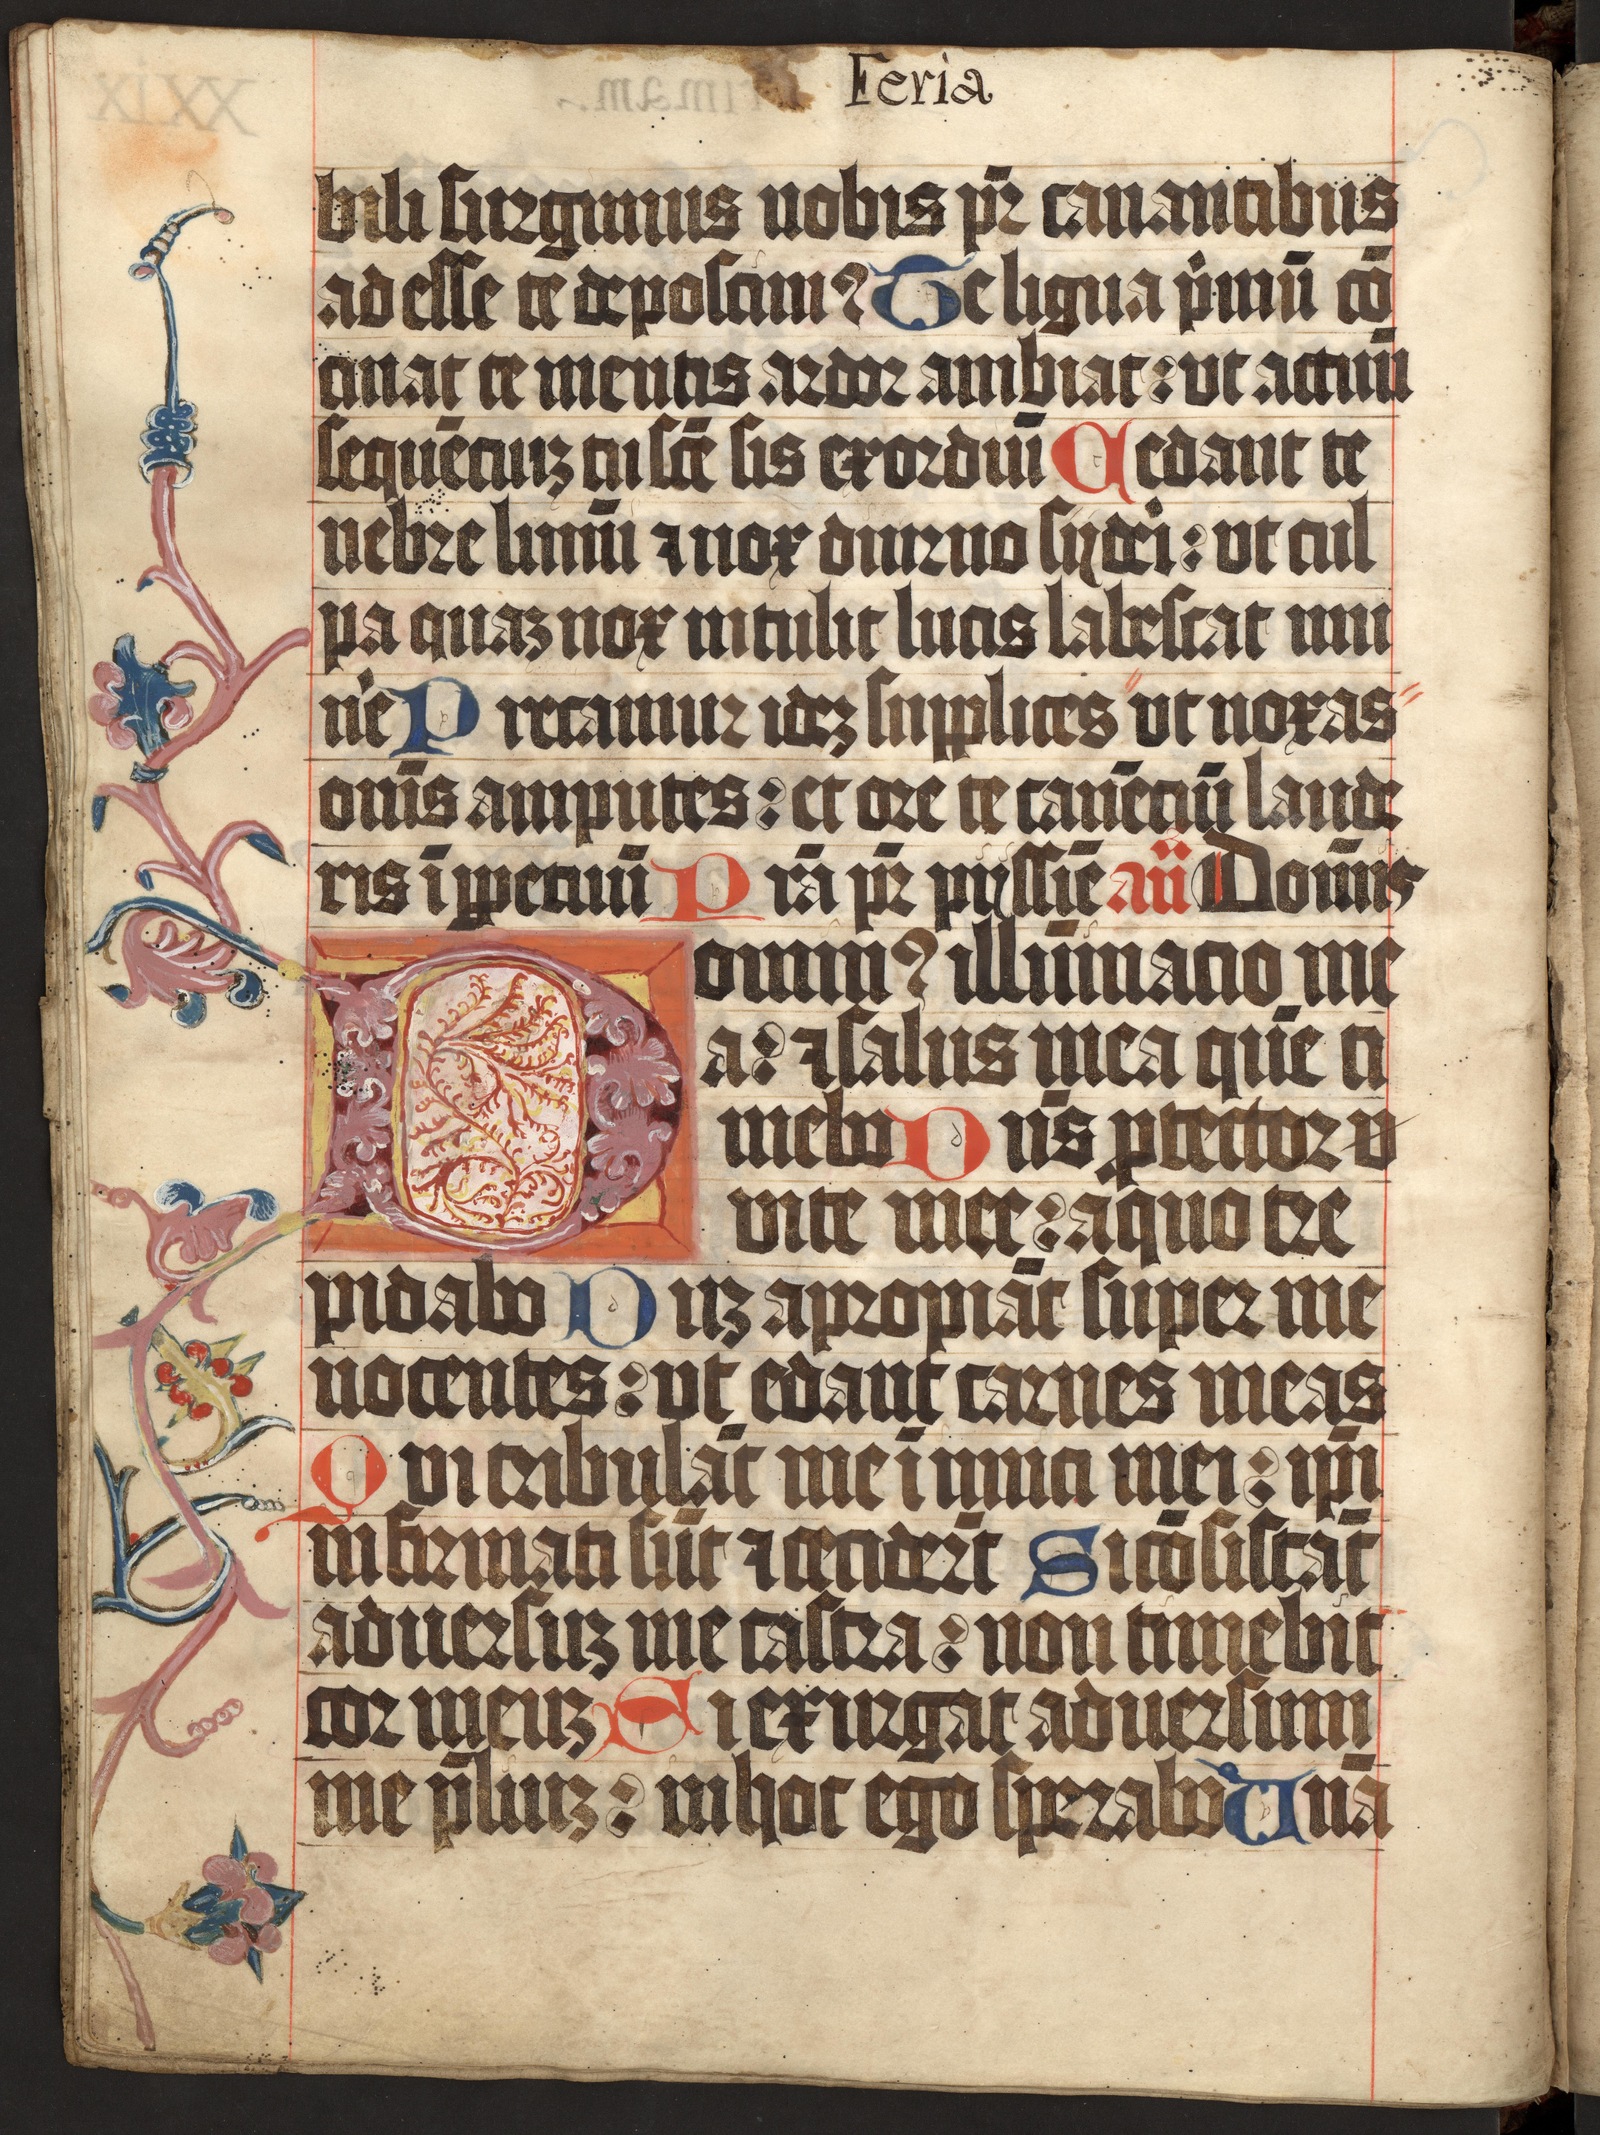 Feria
bili surgimus nobis pr̄ canantibus
ad esse te deposcim⁹ Te ligua pͥmū cō
cinat te mentis ardor ambiat : vt actuū
sequēciuꝫ tu scē sis exordiū Cedant te
nebre lumī ⁊ nox diurno syderi : vt cul
pa quaꝫ nox intulit lucis labescat mu
nͥe Precamur ideꝫ supplices vt noxas
om̄s amputes : et ore te canēciū laude
ris ī ꝑpetuū Prā pr̄ pijssīe an̄ Domin⁹
Dominꝰ illūinacio me
a : ⁊ salus mea quē ti
mebo Dn̄s ꝓtector v
vite mee : aquo tre
pidabo Duꝫ apropiāt super me
nocentes : vt edant carnes meas
Qui tribulāt me inimici mei : ip̄i
infirmati sūt ⁊ cecidert̄ Si cōsistāt
aduersuꝫ me castra : non timebit
cor meuꝫ Si exurgat aduersum
me p̄liuꝫ : in hoc ego sperabo Unā